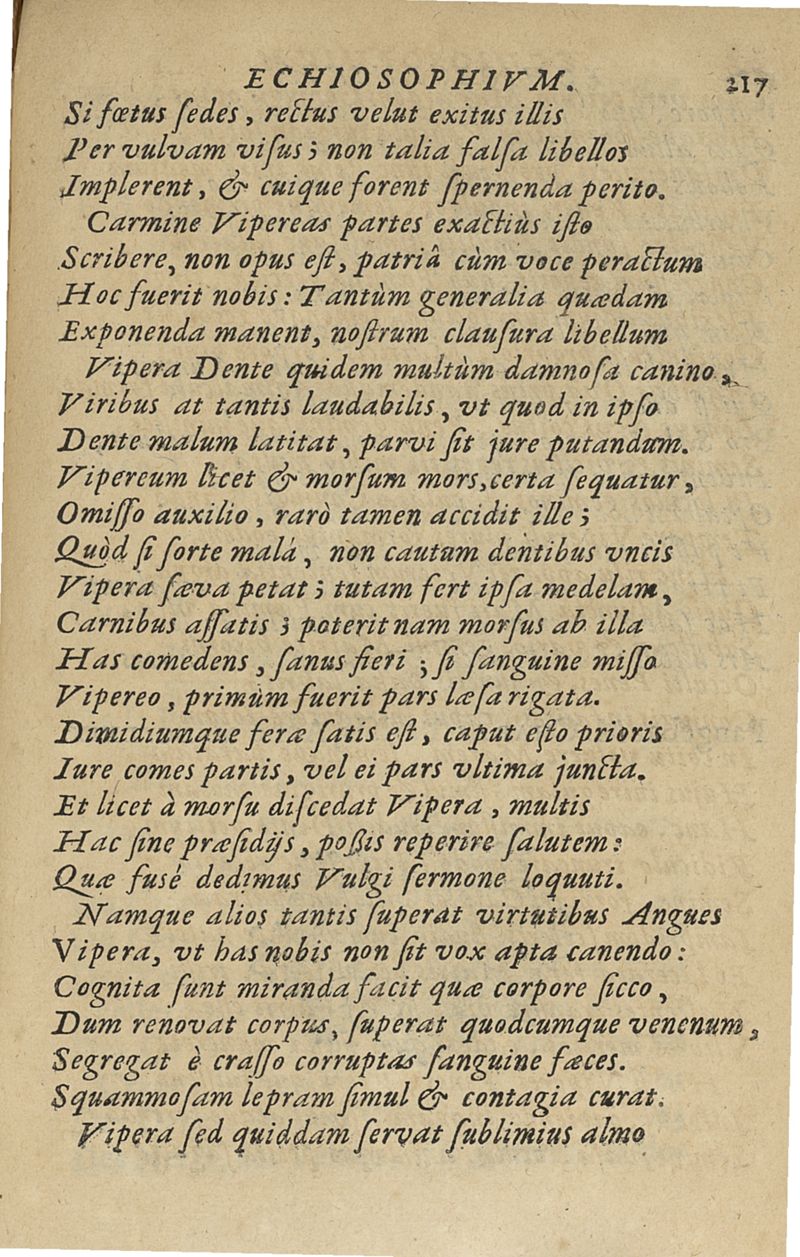 ECHIOSOPHIVM. 217
Si fœtus ſedes, rectus velut exitus illis
Per vulvam viſus; non talia falſa libellos
Implerent, & cuique forent ſpernenda perito.
Carmine Vipereas partes exactiùs iſto
Scribere, non opus eſt, patriâ cùm voce peractum
Hoc fuerit nobis: Tantùm generalia quædam
Exponenda manent, noſtrum clauſura libellum
Vipera Dente quidem multùm damnoſa canino,
Viribus at tantis laudabilis, vt quod in ipſo
Dente malum latitat, parvi ſit jure putandum.
Vipereum licet & morſum mors, certa ſequatur,
Omiſſo auxilio, rarò tamen accidit ille;
Quòd ſi ſorte malá, non cautum dentibus vncis
Vipera ſæva petat; tutam fert ipſa medelam,
Carnibus aſſatis; poterit nam morſus ab illa
Has comedens, ſanus fieri; ſi ſanguine miſſo
Vipereo, primùm fuerit pars læſa rigata.
Dimidiumque feræ ſatis eſt, caput eſto prioris
Iure comes partis, vel ei pars vltima juncta.
Et licet à morſu diſcedat Vipera, multis
Hac ſine præſidijs, poßis reperire ſalutem:
Quæ fusé dedimus Vulgi ſermone loquuti.
Namque alios tantis ſuperat virtutibus Angues
Vipera, vt has nobis non ſit vox apta canendo:
Cognita ſunt miranda facit quæ corpore ſicco,
Dum renovat corpus, ſuperat quodcumque venenum,
Segregat è craſſo corruptas ſanguine fæces.
Squammoſam lepram ſimul & contagia curat.
Vipera ſed quiddam ſervat ſublimius almo